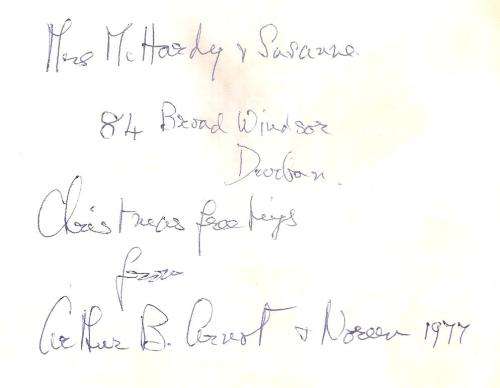 Mrs McHardy & Susanne.
84 Broad Windsor
Durban.
Christmas greetings
from
Arthur B. Arnot & Noreen 1977